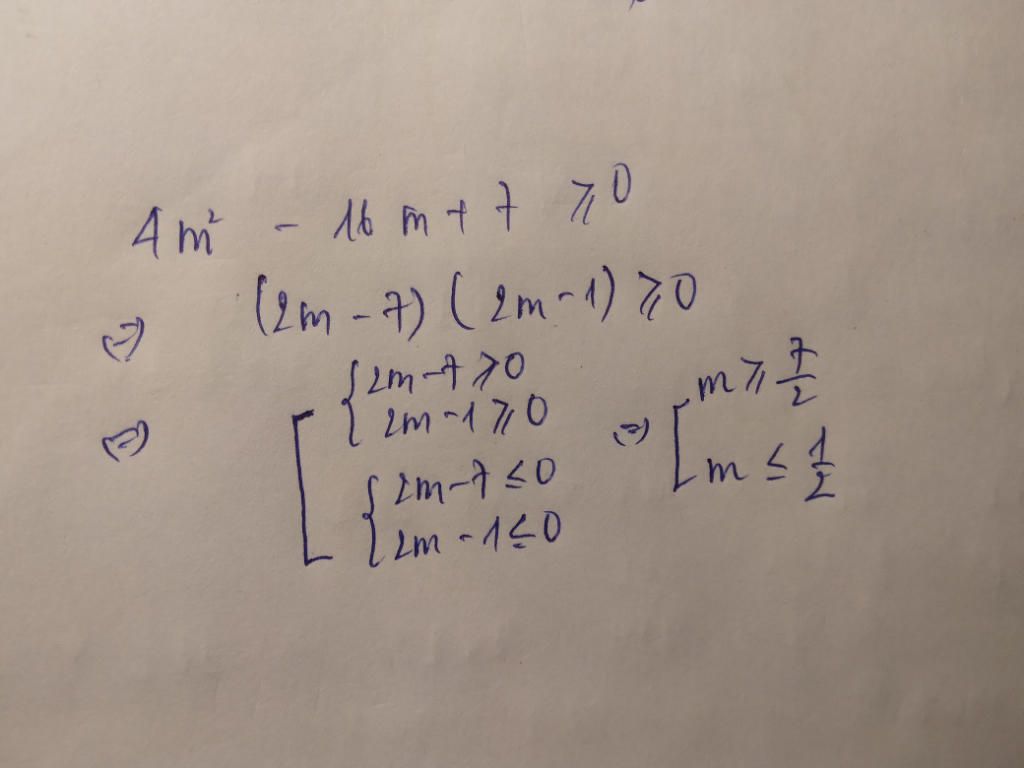 4m² - 16m + 7 ⩾ 0
⇔ (2m - 7) (2m - 1) ⩾ 0
⇔ [ { 2m - 7 ⩾ 0
2m - 1 ⩾ 0
{ 2m - 7 ≤ 0
2m - 1 ≤ 0
⇔ [ m ⩾ 7/2
m ≤ 1/2